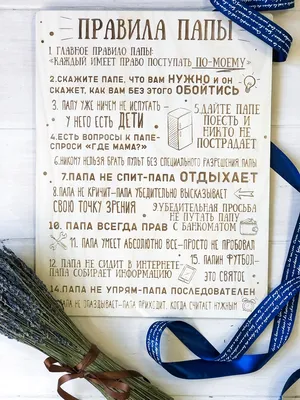 ПРАВИЛА ПАПЫ
1. ГЛАВНОЕ ПРАВИЛО ПАПЫ:
«КАЖДЫЙ ИМЕЕТ ПРАВО ПОСТУПАТЬ ПО-МОЕМУ»
2.СКАЖИТЕ ПАПЕ, ЧТО ВАМ НУЖНО И ОН
СКАЖЕТ, КАК ВАМ БЕЗ ЭТОГО ОБОЙТИСЬ
3. ПАПУ УЖЕ НИЧЕМ НЕ ИСПУГАТЬ-
У НЕГО ЕСТЬ ДЕТИ
4.ЕСТЬ ВОПРОСЫ К ПАПЕ-
СПРОСИ «ГДЕ МАМА?»
5.ДАЙТЕ ПАПЕ
ПОЕСТЬ И
НИКТО НЕ
ПОСТРАДАЕТ
6.НИКОМУ НЕЛЬЗЯ БРАТЬ ПУЛЬТ БЕЗ СПЕЦИАЛЬНОГО РАЗРЕШЕНИЯ ПАПЫ
7.ПАПА НЕ СПИТ-ПАПА ОТДЫХАЕТ
8.ПАПА НЕ КРИЧИТ-ПАПА УБЕДИТЕЛЬНО ВЫСКАЗЫВАЕТ
СВОЮ ТОЧКУ ЗРЕНИЯ
9.УБЕДИТЕЛЬНАЯ ПРОСЬБА
НЕ ПУТАТЬ ПАПУ
С БАНКОМАТОМ
10. ПАПА ВСЕГДА ПРАВ
11. ПАПА УМЕЕТ АБСОЛЮТНО ВСЕ-ПРОСТО НЕ ПРОБОВАЛ
12. ПАПА НЕ СИДИТ В ИНТЕРНЕТЕ-
ПАПА СОБИРАЕТ ИНФОРМАЦИЮ
13. ПАПИН ФУТБОЛ-
ЭТО СВЯТОЕ
14.ПАПА НЕ УПРЯМ-ПАПА ПОСЛЕДОВАТЕЛЕН
ПАПА НЕ ОПАЗДЫВАЕТ-ПАПА ПРИХОДИТ, КОГДА СЧИТАЕТ НУЖНЫМ